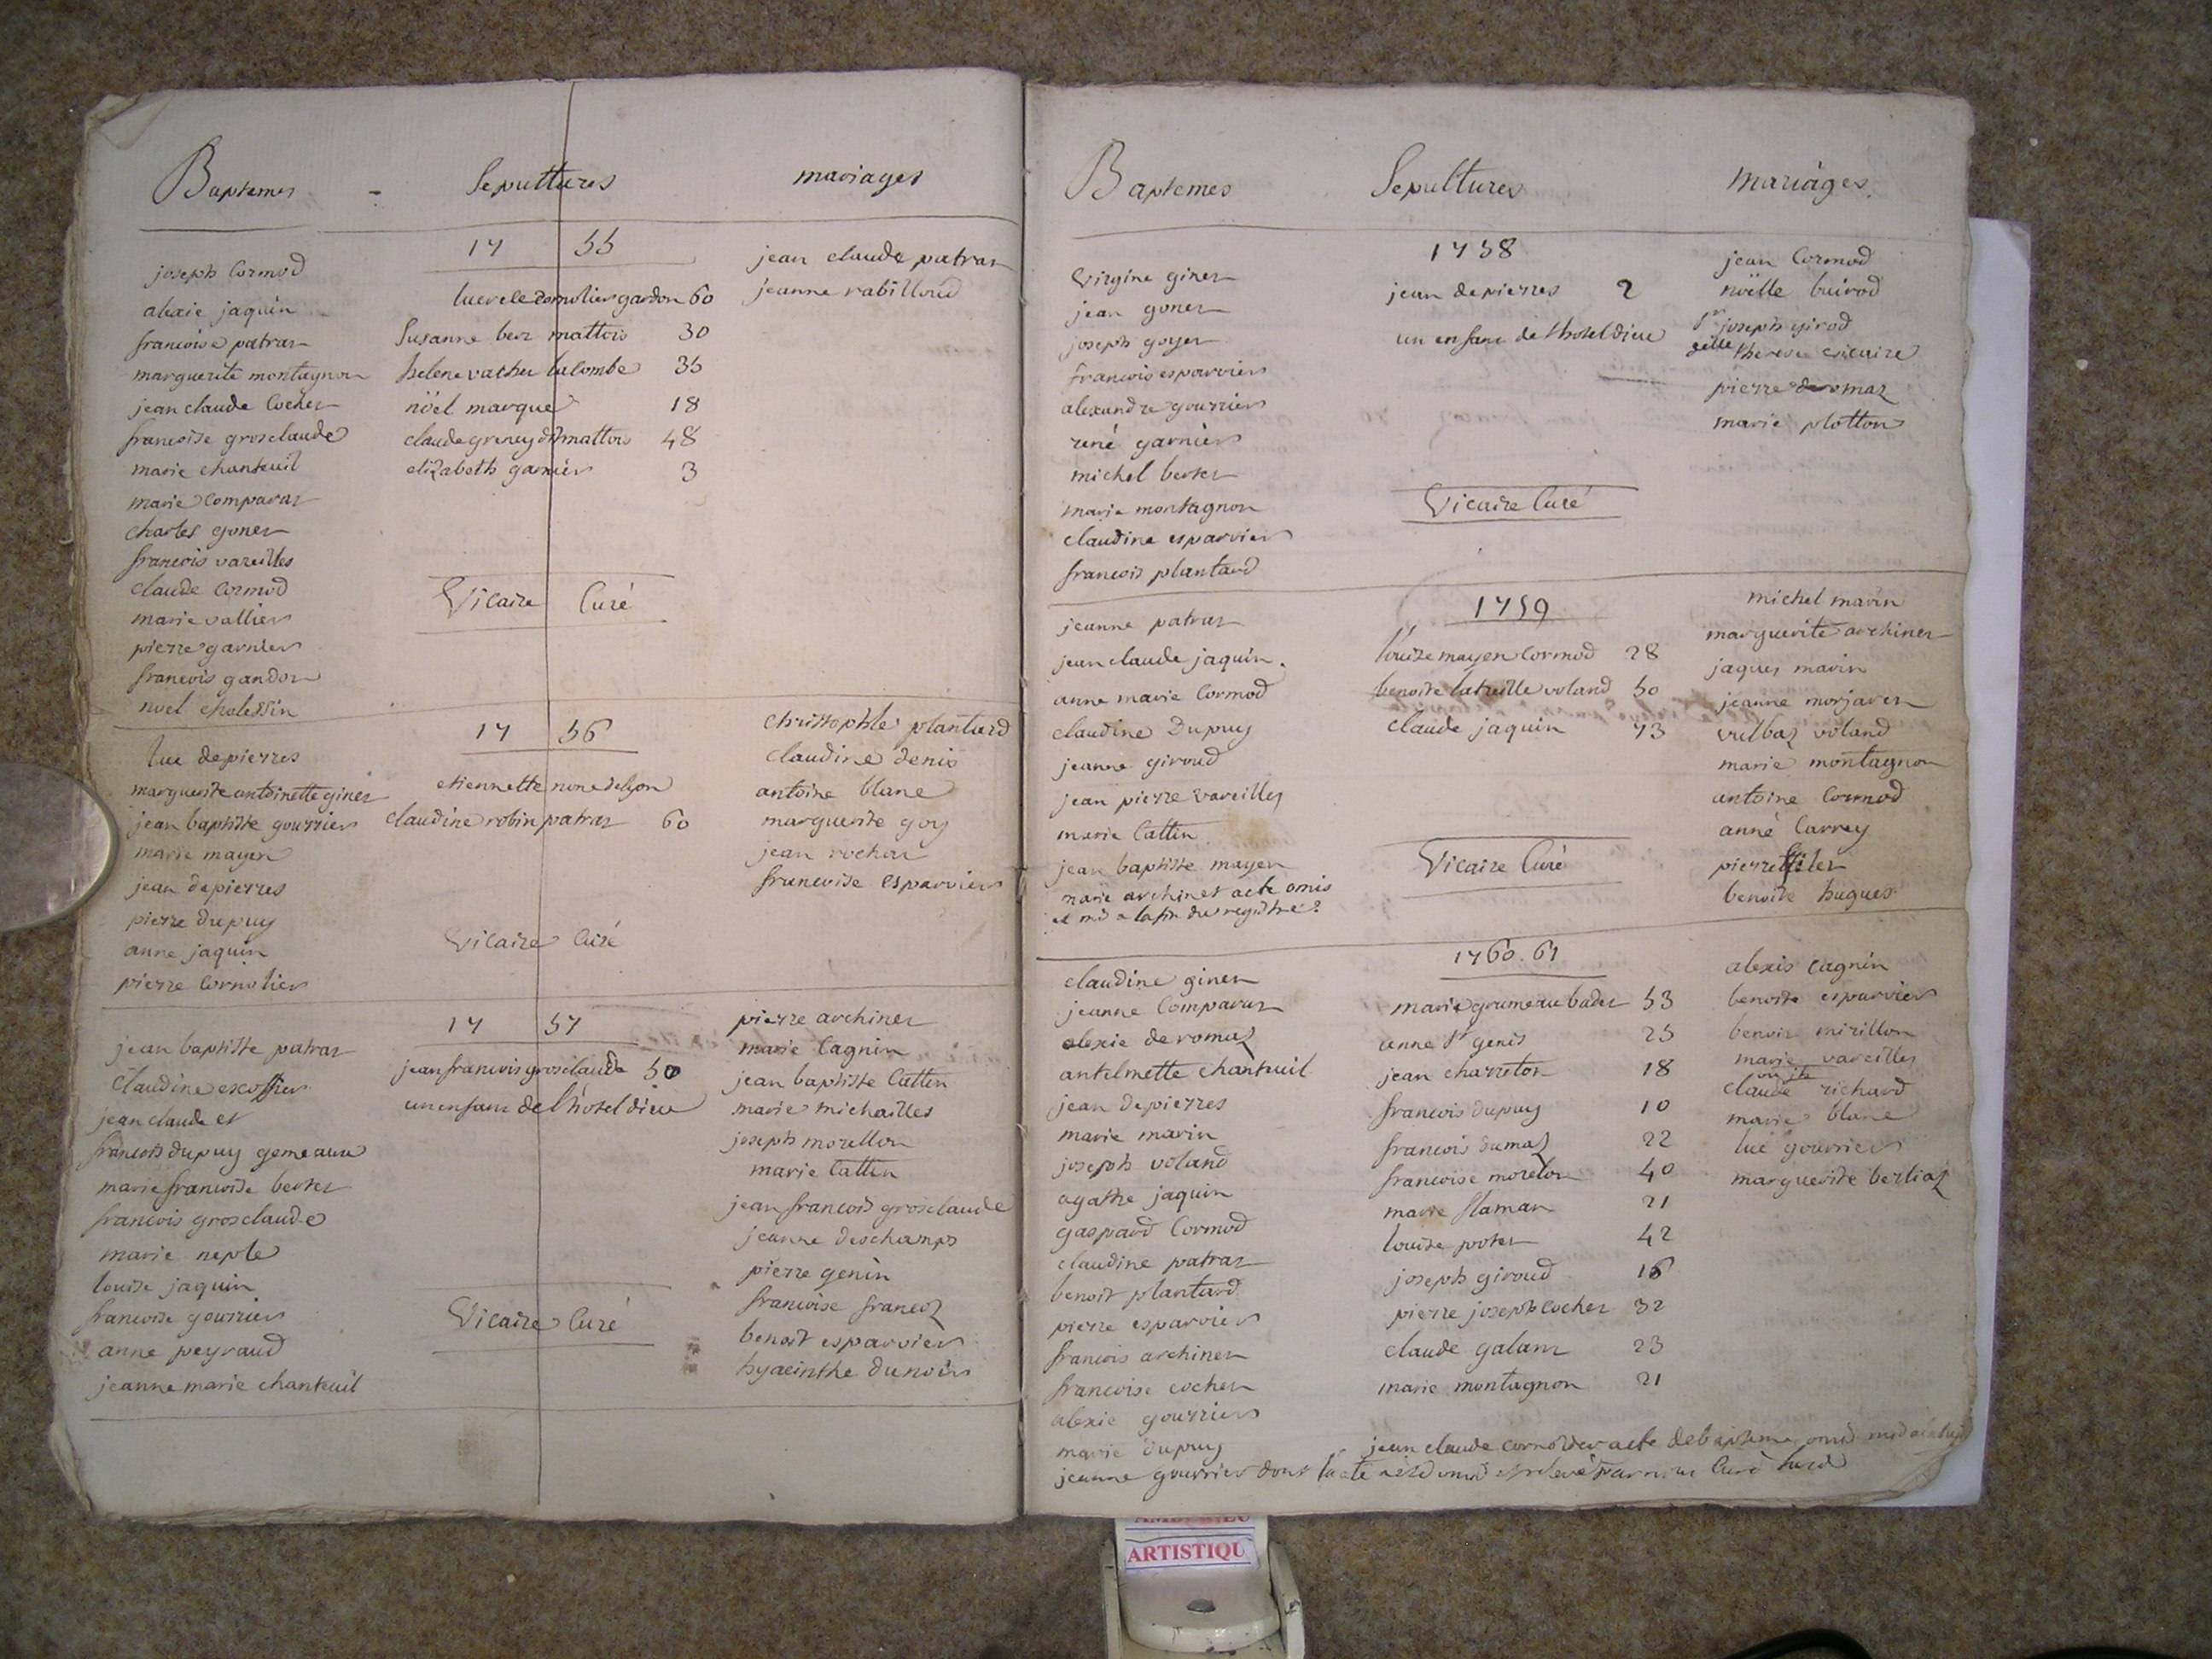 Baptemes - Sepultures mariages
1755
joseph Cormod
alexie jaquin
francoise patrar
marguerite montagnon
jean claude Cocher
francoise grosclaude
marie chanteuil
marie Comparar
charles goner
francois vareilles
claude Cormod
marie vallier
pierre garnier
francois gandon
noel cholessin
gardon 60
Susanne ber mattois 30
helene vacher lacombe 35
nöel marque 18
claude greney mattois 48
elizabeth garnier 3
Vicaire Curé
jean claude patrar
jeanne rabilloud
1756
luc depierres
marguerite antoinette giner
jean baptiste gourrier
marie mayen
jean depierres
pierre dupuy
anne jaquin
pierre Cornolier
etiennette none de lyon
claudine robin patrar 60
Vicaire Curé
christophle plantard
claudine denis
antoine blanc
marguerite goy
jean rochar
francoise esparvier
1757
jean baptiste patrar
Claudine escoffier
jean claude et
francois dupuy gemeaux
marie francoise berter
francois grosclaude
marie neple
louise jaquin
francoise gourrier
anne peyraud
jeanne marie chanteuil
jean francois grosclaude 50
un enfant de l'hotel dieu
Vicaire Curé
pierre archiner
marie Cagnin
jean baptiste Cattin
marie michailles
joseph morellon
marie Cattin
jean francois grosclaude
jeanne deschamps
pierre genin
francoise francoz
benoit esparvier
hyacinthe dunoir
Baptemes Sepultures mariages
1758
Virgine giner
jean goner
joseph goyer
francois esparvier
alexandre gourrier
rené garnier
michel berter
marie montagnon
claudine esparvier
francois plantard
jean depierres 2
un enfant de l'hotel dieu
Vicaire Curé
jean Cormod
nöelle buirod
joseph girod
therese
pierre deromaz
marie plotton
1759
jeanne patrar
jean claude jaquin.
anne marie Cormod
claudine Dupuy
jeanne giroud
jean pierre vareilles
marie Cattin
jean baptiste mayen
marie archiner acte omis
et mis a la fin du registre
Louise mayen Cormod 28
benoite latreille voland 50
claude jaquin 73
Vicaire Curé
michel marin
marguerite archiner
jaques marin
jeanne morjaren
vulbaz voland
marie montagnon
antoine Cormod
anne Carrey
pierre
benoite hugues
1760. 61
claudine giner
jeanne Comparar
alexie deromaz
antelmette chanteuil
jean depierres
marie marin
joseph voland
agathe jaquin
gaspard Cormod
claudine patrar
benoit plantard
pierre esparvier
francois archiner
francoise cocher
alexie gourrier
marie dupuy
jeanne gourrier dont l'acte Curé
marie grumeau bader 53
anne St genis 25
jean charreton 18
francois dupuy 10
francois dumaz 22
francoise morelon 40
marie flaman 21
louise porter 42
joseph giroud 16
pierre joseph Cocher 32
claude galanr 23
marie montagnon 21
jean claude cornolier acte de bapteme omis
alexis Cagnin
benoite esparvier
benoit mirillon
marie vareilles
claude richard
marie blanc
luc gourrier
marguerite berliaz
ARTISTIQU